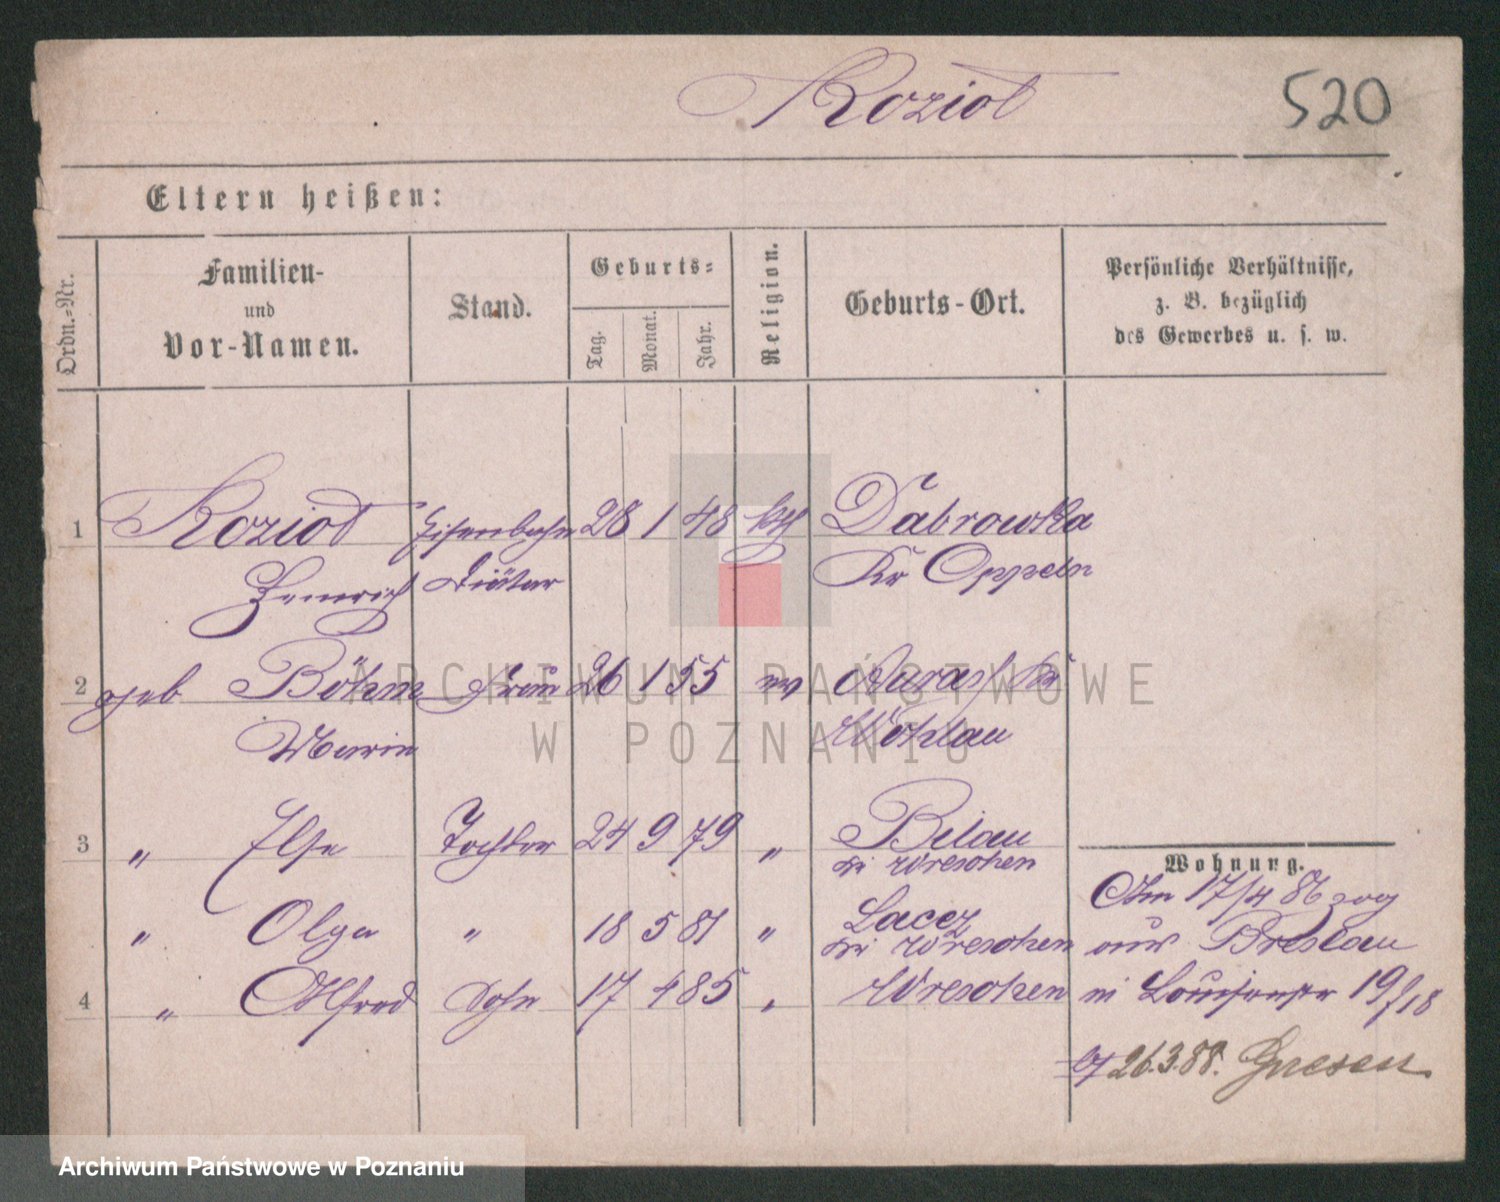 Koziol
520
Eltern heißen:
Ordn.-Nr.
Familien-
und
Vor-Namen.
Stand.
Geburts-
Tag.
Monat.
Jahr.
Religion.
Geburts-Ort.
Persönliche Verhältnisse,
z. B. bezüglich
des Gewerbes u. s. w.
1 Koziol Eisenbahn 28 1 48 kth Dabrowka
Heinrich Diätar Kr Oppeln
2 geb Böhm Frau 26 1 55 ev Auras Kr
Marie Wohlau
3 " Else Tochter 24 9 79 " Bilau
Kr Wreschen
" Olga " 18 5 81 " Lacez
Kr Wreschen
4 " Alfred Sohn 17 4 85 " Wreschen
Wohnung.
Am 17/4 86 zog
aus Breslau
n Louisenstr 19/18
26.3.88. Gnesen
ARCHIWUM PAŃSTWOWE
W POZNANIU
Archiwum Państwowe w Poznaniu